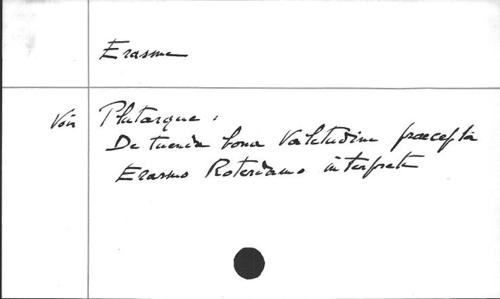 Erasme
Voir Plutarque.
De tuenda bona Valetudine praecepta
Erasmo Roterdamo interprete